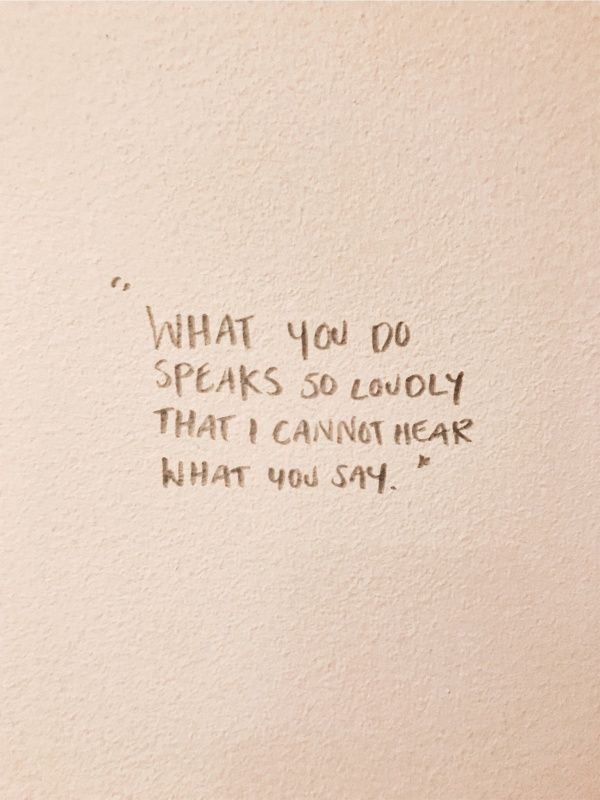 "WHAT YOU DO
SPEAKS SO LOUDLY
THAT I CANNOT HEAR
WHAT YOU SAY."